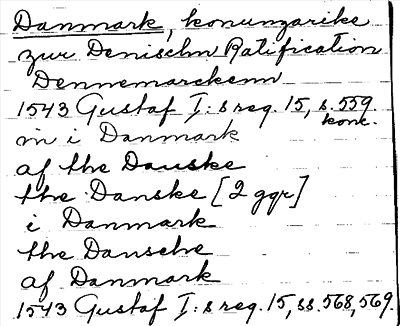 Danmark, konungarike
zur Denischn Ratification
Dennemarckenn
1543 Gustaf I: s reg. 15, s. 559
konc.
in i Danmark
af the Dauske
the Danske [2 ggr]
i Danmark
the Dansche
af Danmark
1543 Gustaf I: s reg. 15, ss. 568, 569.